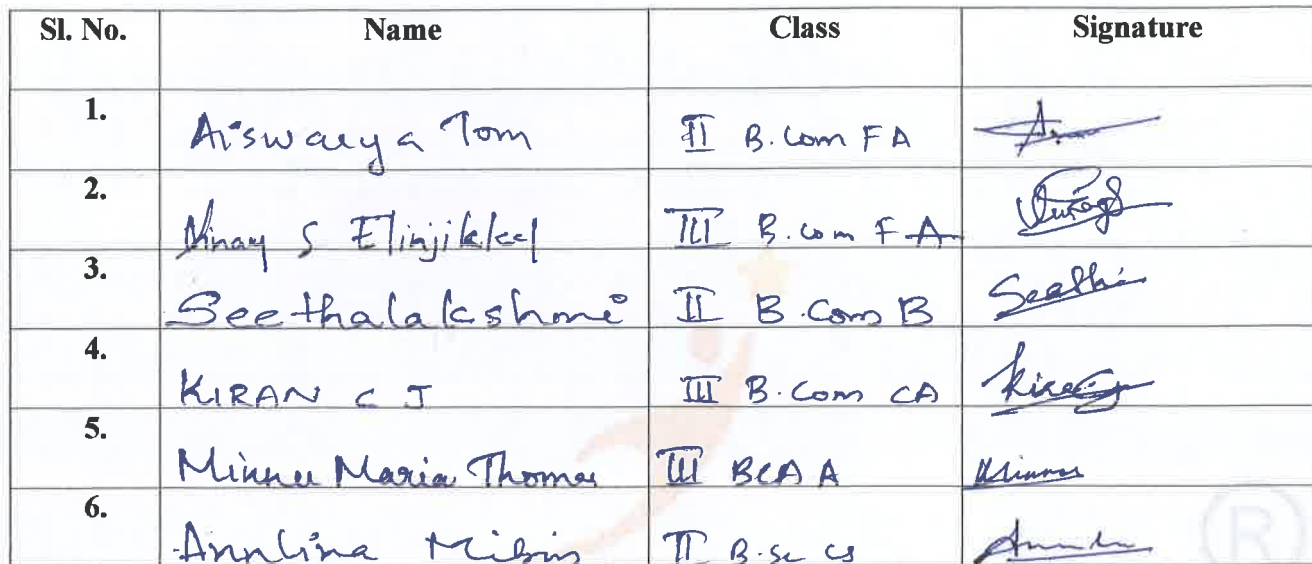 Sl. No. Name Class Signature
1. Aiswarya Tom II B.Com FA
2. Vinay S Elinjikkal III B.Com FA
3. Seethalakshmi II B.Com B Seetha
4. KIRAN C J III B.Com CA Kiran
5. Minnu Maria Thomas III BCA A Minnu
6. Annlina Mibin II B.Sc CS
R